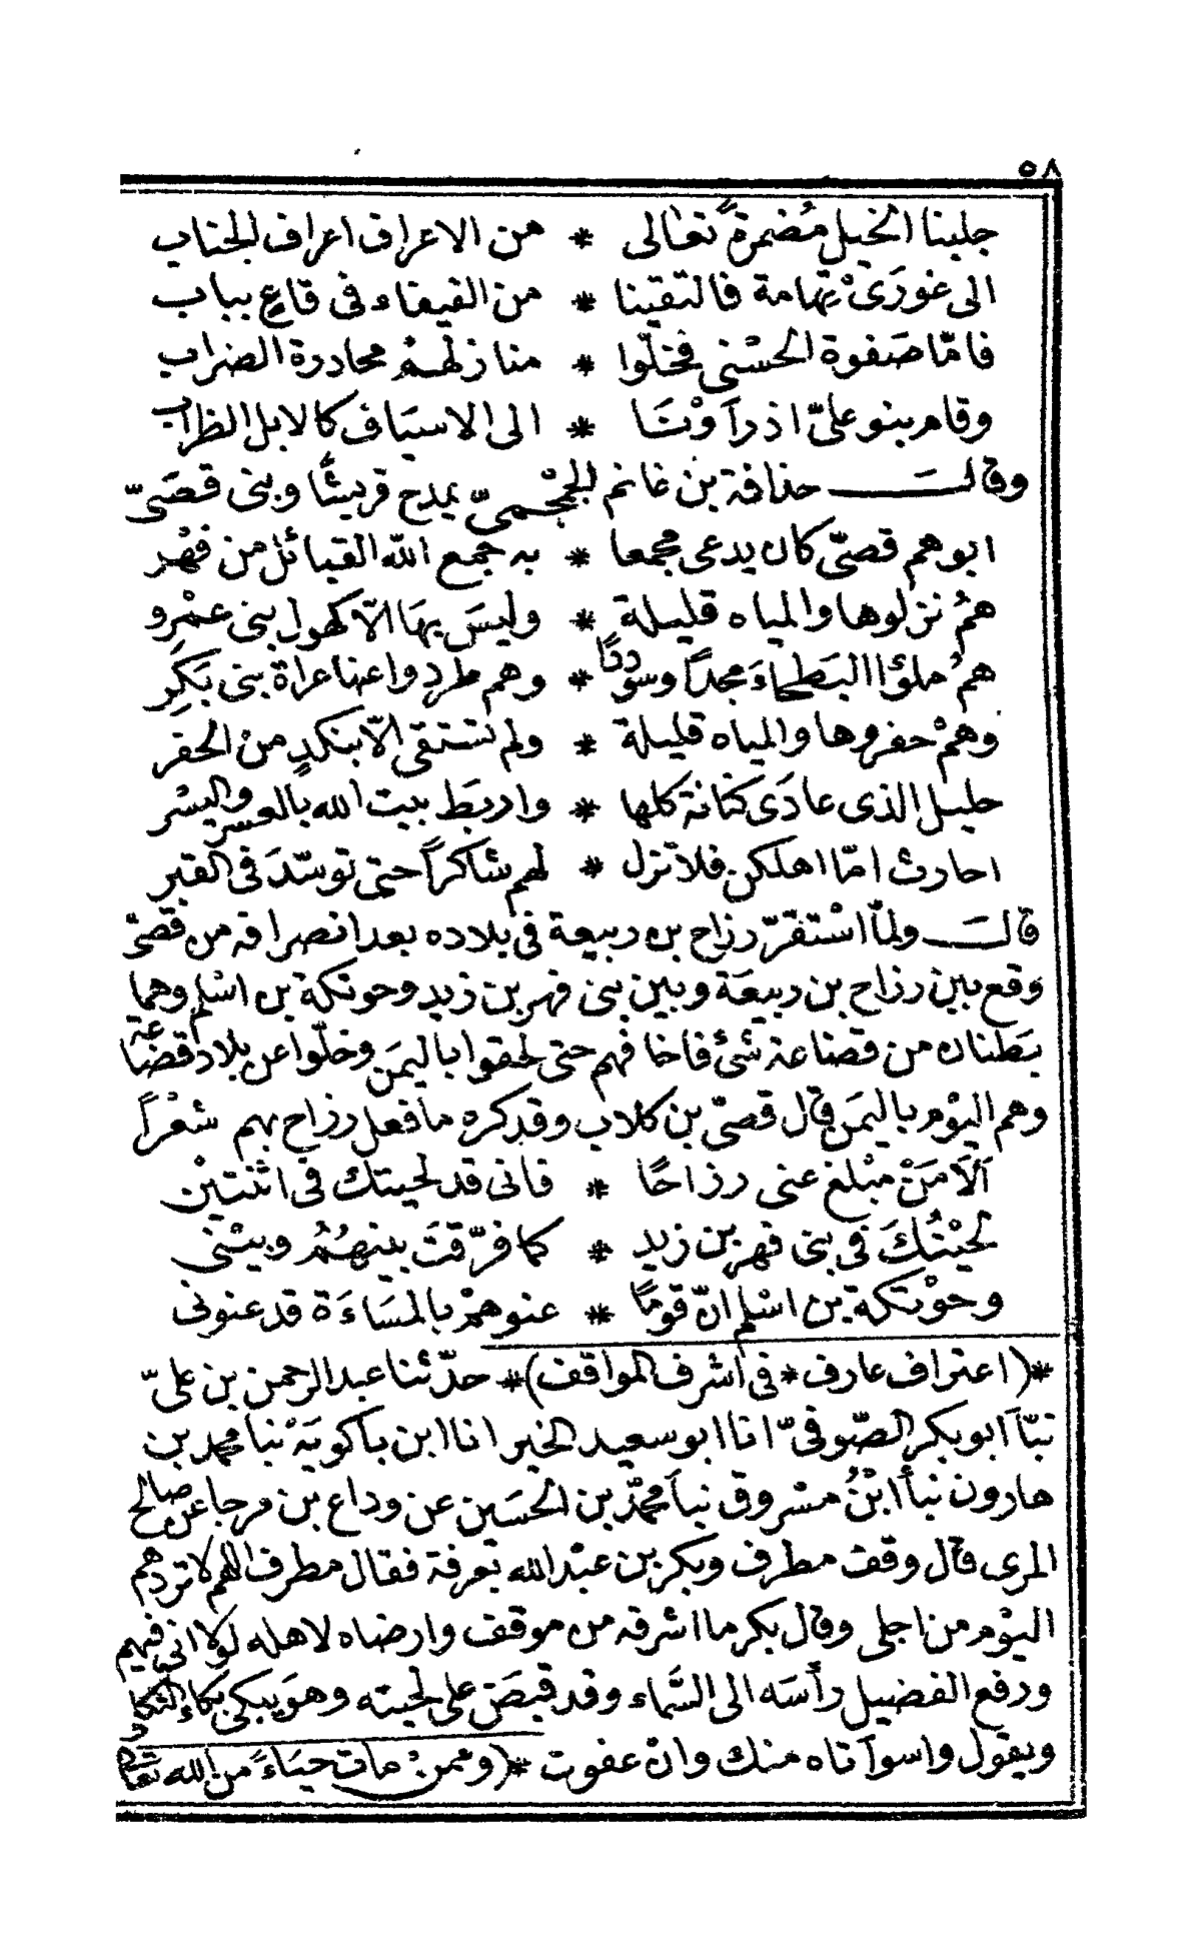 ٥٨
جلبنا الخيل مُضمرةً تعالى * من الاعراف اعراف الجناب
الى غورَىْ تهامة فالتقينا * من الفيفاء فى قاعٍ يباب
فامّا صَفوة الخسْنى فخلّوا * منازلهمْ محاذرة الضراب
وقام بنو علىّ اذ رآوْنَا * الى الاسيَاف كالابل الطراب
وقالَ حذافة بن غانم الجمْحىّ يمدح قريشًا وبنى قصَىّ
ابوهم قصىّ كان يدعى مجمعا * به جمع الله القبائل من فهْر
همُ نزلوها والمياه قليلة * وليسَ بهَا الّا كهول بنى عمْرو
همُ ملؤا البَطحاءَ مجدًا وسوددًا * وهم طردوا عنا عراة بنى بَكرِ
وهمْ حفروها والمياه قليلة * ولم تستقى الّا بنكدٍ من الحفر
حليل الذى عادَى كنانة كلها * واربَط بيت الله بالعسر واليسْر
احارث امّا اهلكن فلا تزل * لهم شاكراً حتى توسّدَ فى القبر
قالَ ولمّا اسْتقرّ رزاح بن ربيعة فى بلاده بعد انصرافه من قصىّ
وَقع بين رزاح بن ربيعَة وبين بنى فهر بن زيد وحوتكة بن اسْلم وهما
بَطنان من قضاعة شئ فاخافهم حتى لحقوا باليمَن وخلّوا عن بلاد قضَاعة
وهم اليوْم باليمَن قال قصىّ بن كلاب وقد كره ما فعل رزاح بهم شعْراً
آلَا مَنْ مبْلغ عنى رزاحًا * فانى قد لحيتك فى اثنتيْن
لحيْتُكَ فى بنى فهر بن زيد * كما فرّقتَ بينهُمُ وبيْنى
وحوْتكة بن اسْلم انّ قومًا * عنوهمْ بالمسَاءَة قد عنونى
*(اعتراف عارف * فى اشرف المواقف)* حدّثنا عبد الرحمن بن علىّ
نبّأ ابو بكر الصّوفىّ انا ابو سعيد الخير انا ابن باكويَهْ نبا محمد بن
هارون نبأ ابْنُ مسْروق نبأ محمّد بن الحسَين عن وداع بن مرجا عن صالح
المرى قال وقف مطرف وبكر بن عبْد الله بعرفة فقال مطرف اللهم لا تردهم
اليوْم من اجلى وقال بكر ما اشرفه من موقف وارضاه لاهله لولا انى فيهم
ورفع الفضيل رأسَه الى السَّماء وقد قبَضَ على لحيته وهوَ يبكى بكاء الثكلى
ويقول واسوآتاه منك وانْ عفوت *(وممن مات حيَاءً من الله تعَالى